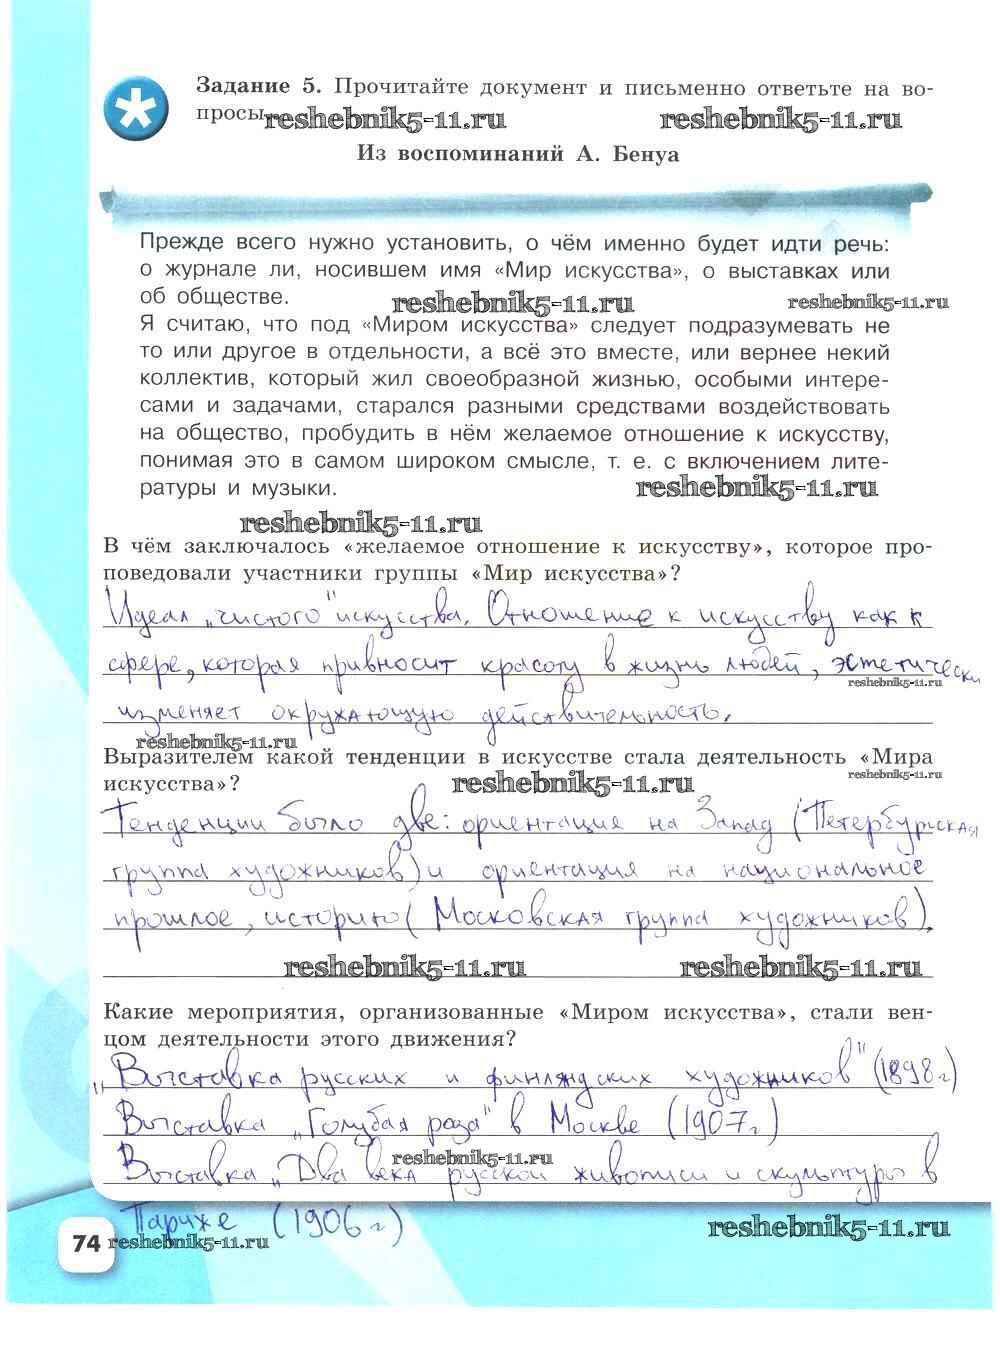 Задание 5. Прочитайте документ и письменно ответьте на во-
просы.
reshebnik5-11.ru reshebnik5-11.ru
Из воспоминаний А. Бенуа
Прежде всего нужно установить, о чём именно будет идти речь:
о журнале ли, носившем имя «Мир искусства», о выставках или
об обществе.
reshebnik5-11.ru reshebnik5-11.ru
Я считаю, что под «Миром искусства» следует подразумевать не
то или другое в отдельности, а всё это вместе, или вернее некий
коллектив, который жил своеобразной жизнью, особыми интере-
сами и задачами, старался разными средствами воздействовать
на общество, пробудить в нём желаемое отношение к искусству,
понимая это в самом широком смысле, т. е. с включением лите-
ратуры и музыки.
reshebnik5-11.ru
reshebnik5-11.ru
В чём заключалось «желаемое отношение к искусству», которое про-
поведовали участники группы «Мир искусства»?
Идеал „чистого" искусства. Отношение к искусству как к
сфере, которая привносит красоту в жизнь людей, эстетически
reshebnik5-11.ru
изменяет окружающую действительность.
reshebnik5-11.ru
Выразителем какой тенденции в искусстве стала деятельность «Мира
искусства»?
reshebnik5-11.ru reshebnik5-11.ru
Тенденции было две: ориентация на Запад (Петербургская
группа художников) и ориентация на национальное
прошлое, историю (Московская группа художников).
reshebnik5-11.ru reshebnik5-11.ru
Какие мероприятия, организованные «Миром искусства», стали вен-
цом деятельности этого движения?
„Выставка русских и финляндских художников" (1898г)
Выставка „Голубая роза" в Москве (1907г)
reshebnik5-11.ru
Выставка „Два века русской живописи и скульптуры в
Париже (1906 г)
74 reshebnik5-11.ru reshebnik5-11.ru